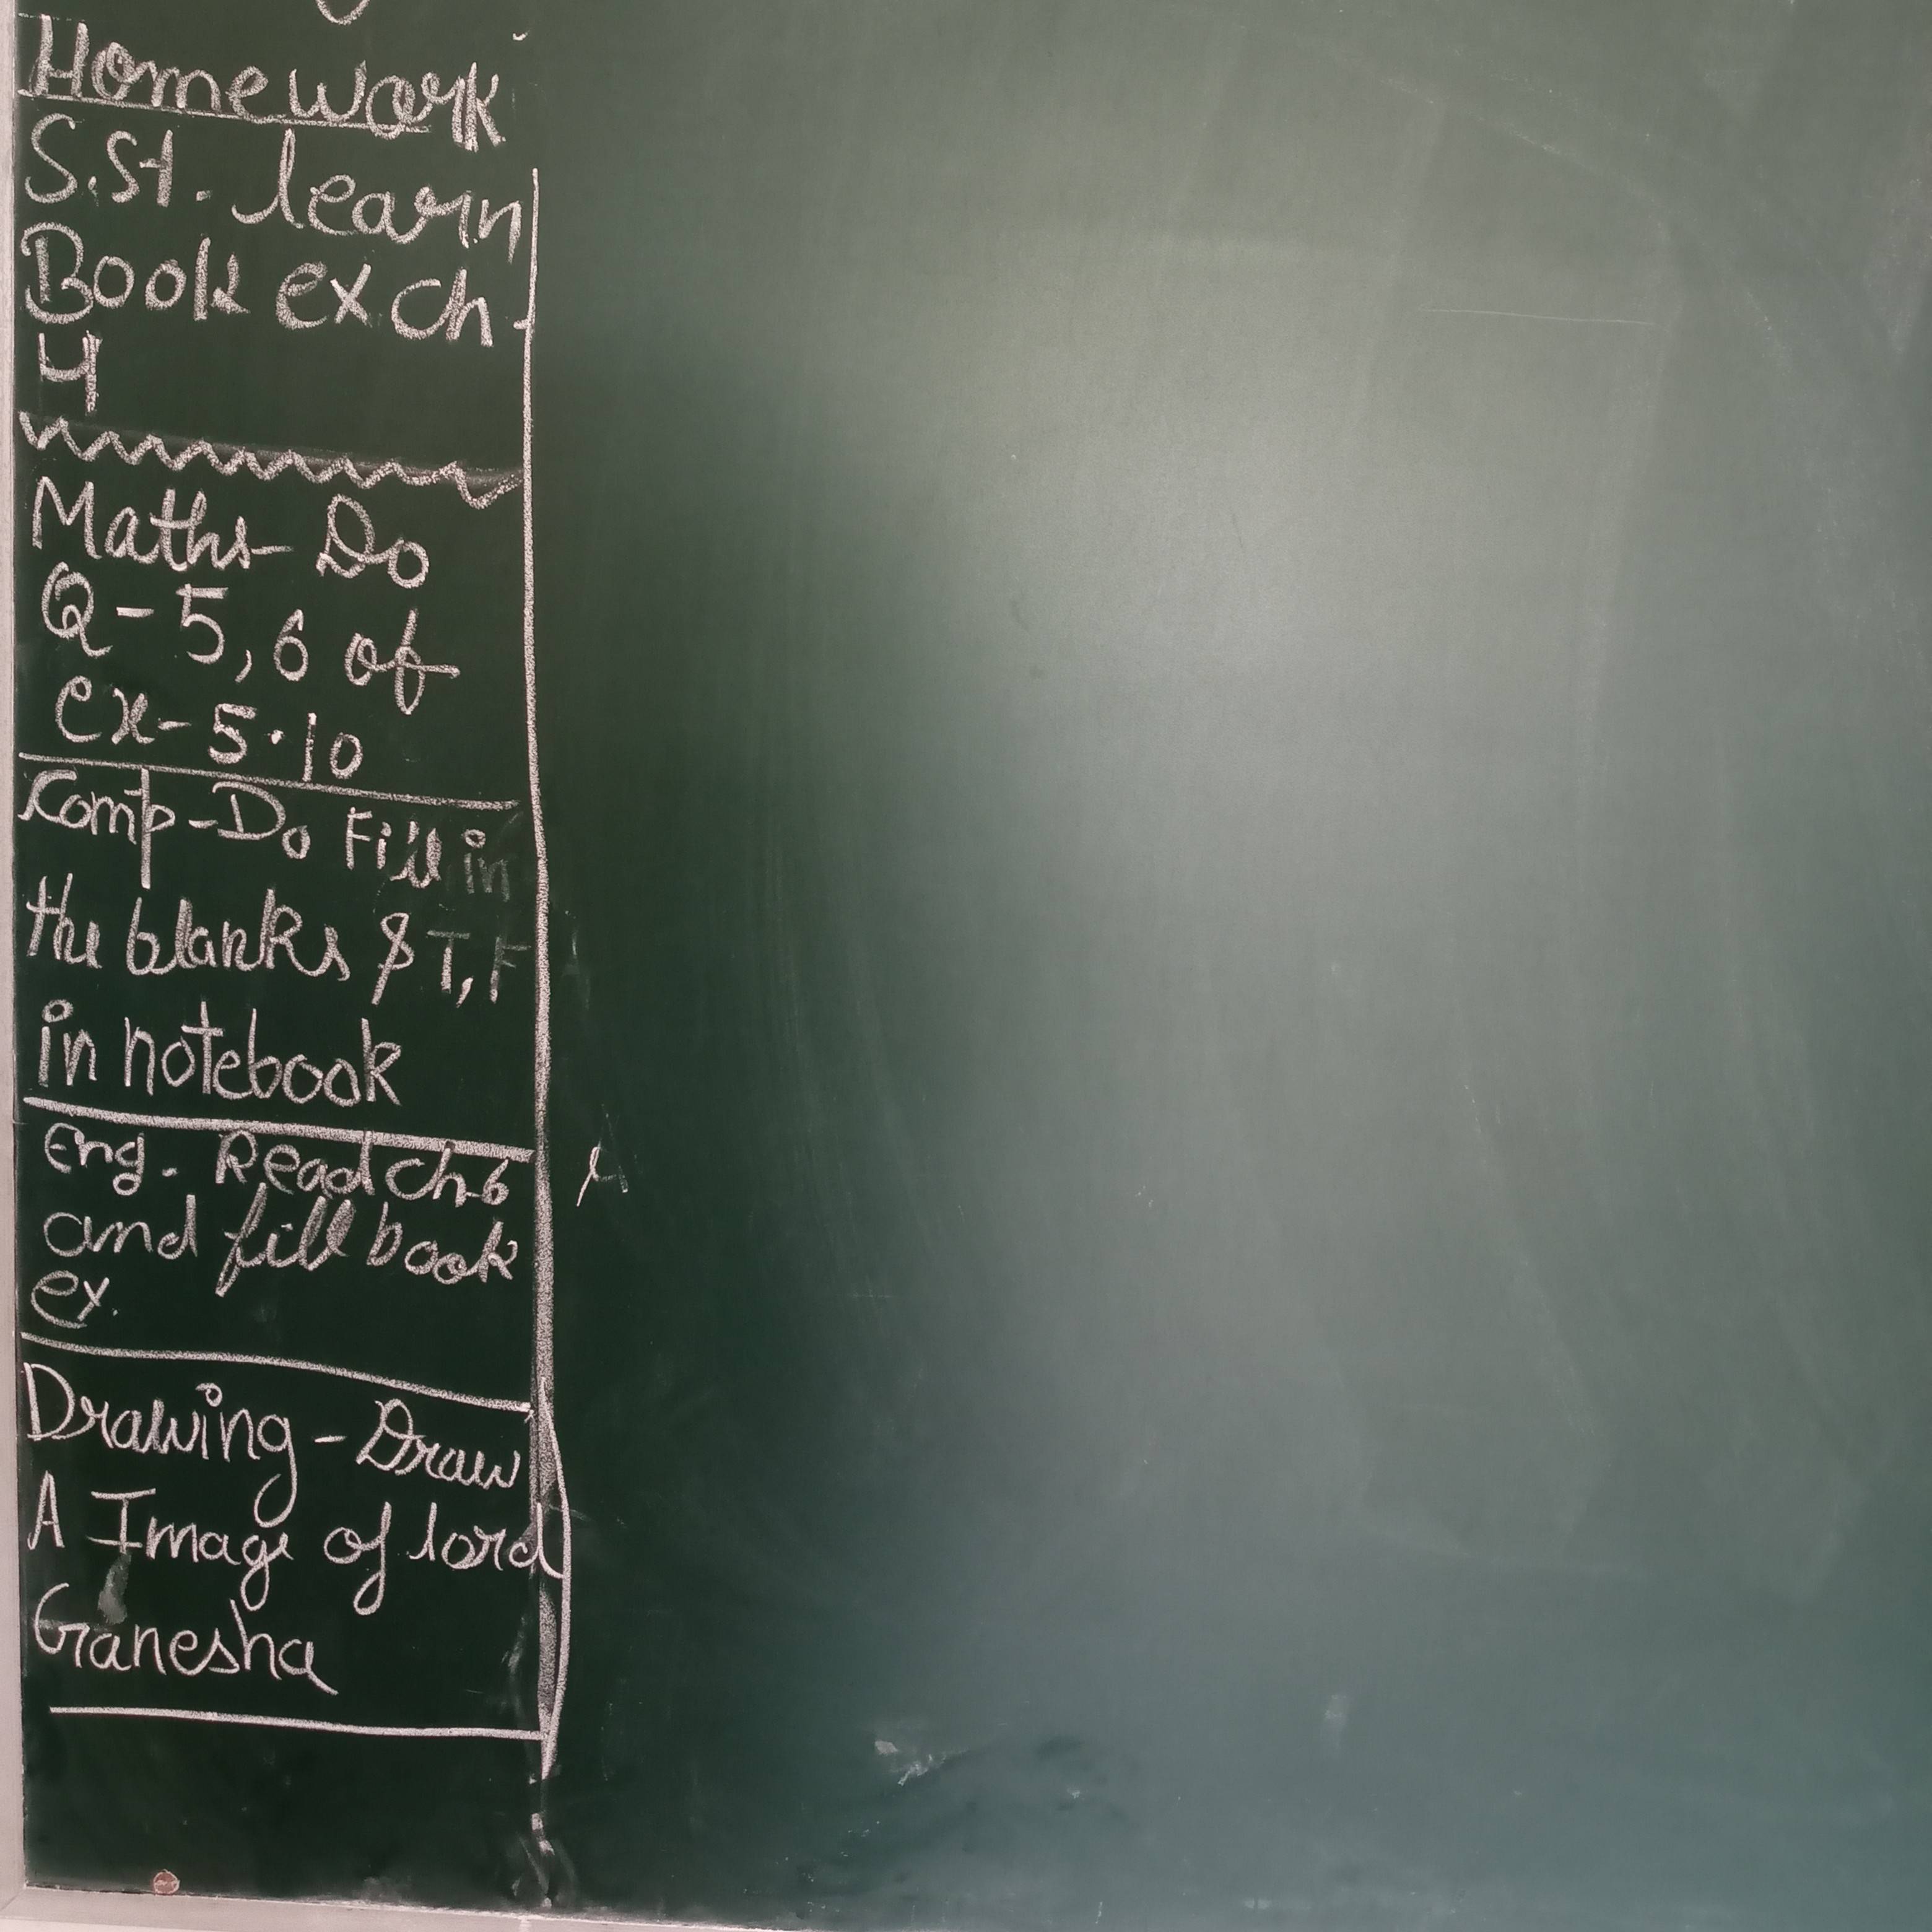 Homework
S.St. learn
Book ex ch.
4
Maths- Do
Q-5,6 of
ex-5.10
Comp-Do Fill in
the blanks & T,F
in notebook
Eng. Read ch-6
and fill book
ex.
Drawing-Draw
A Image of lord
Ganesha